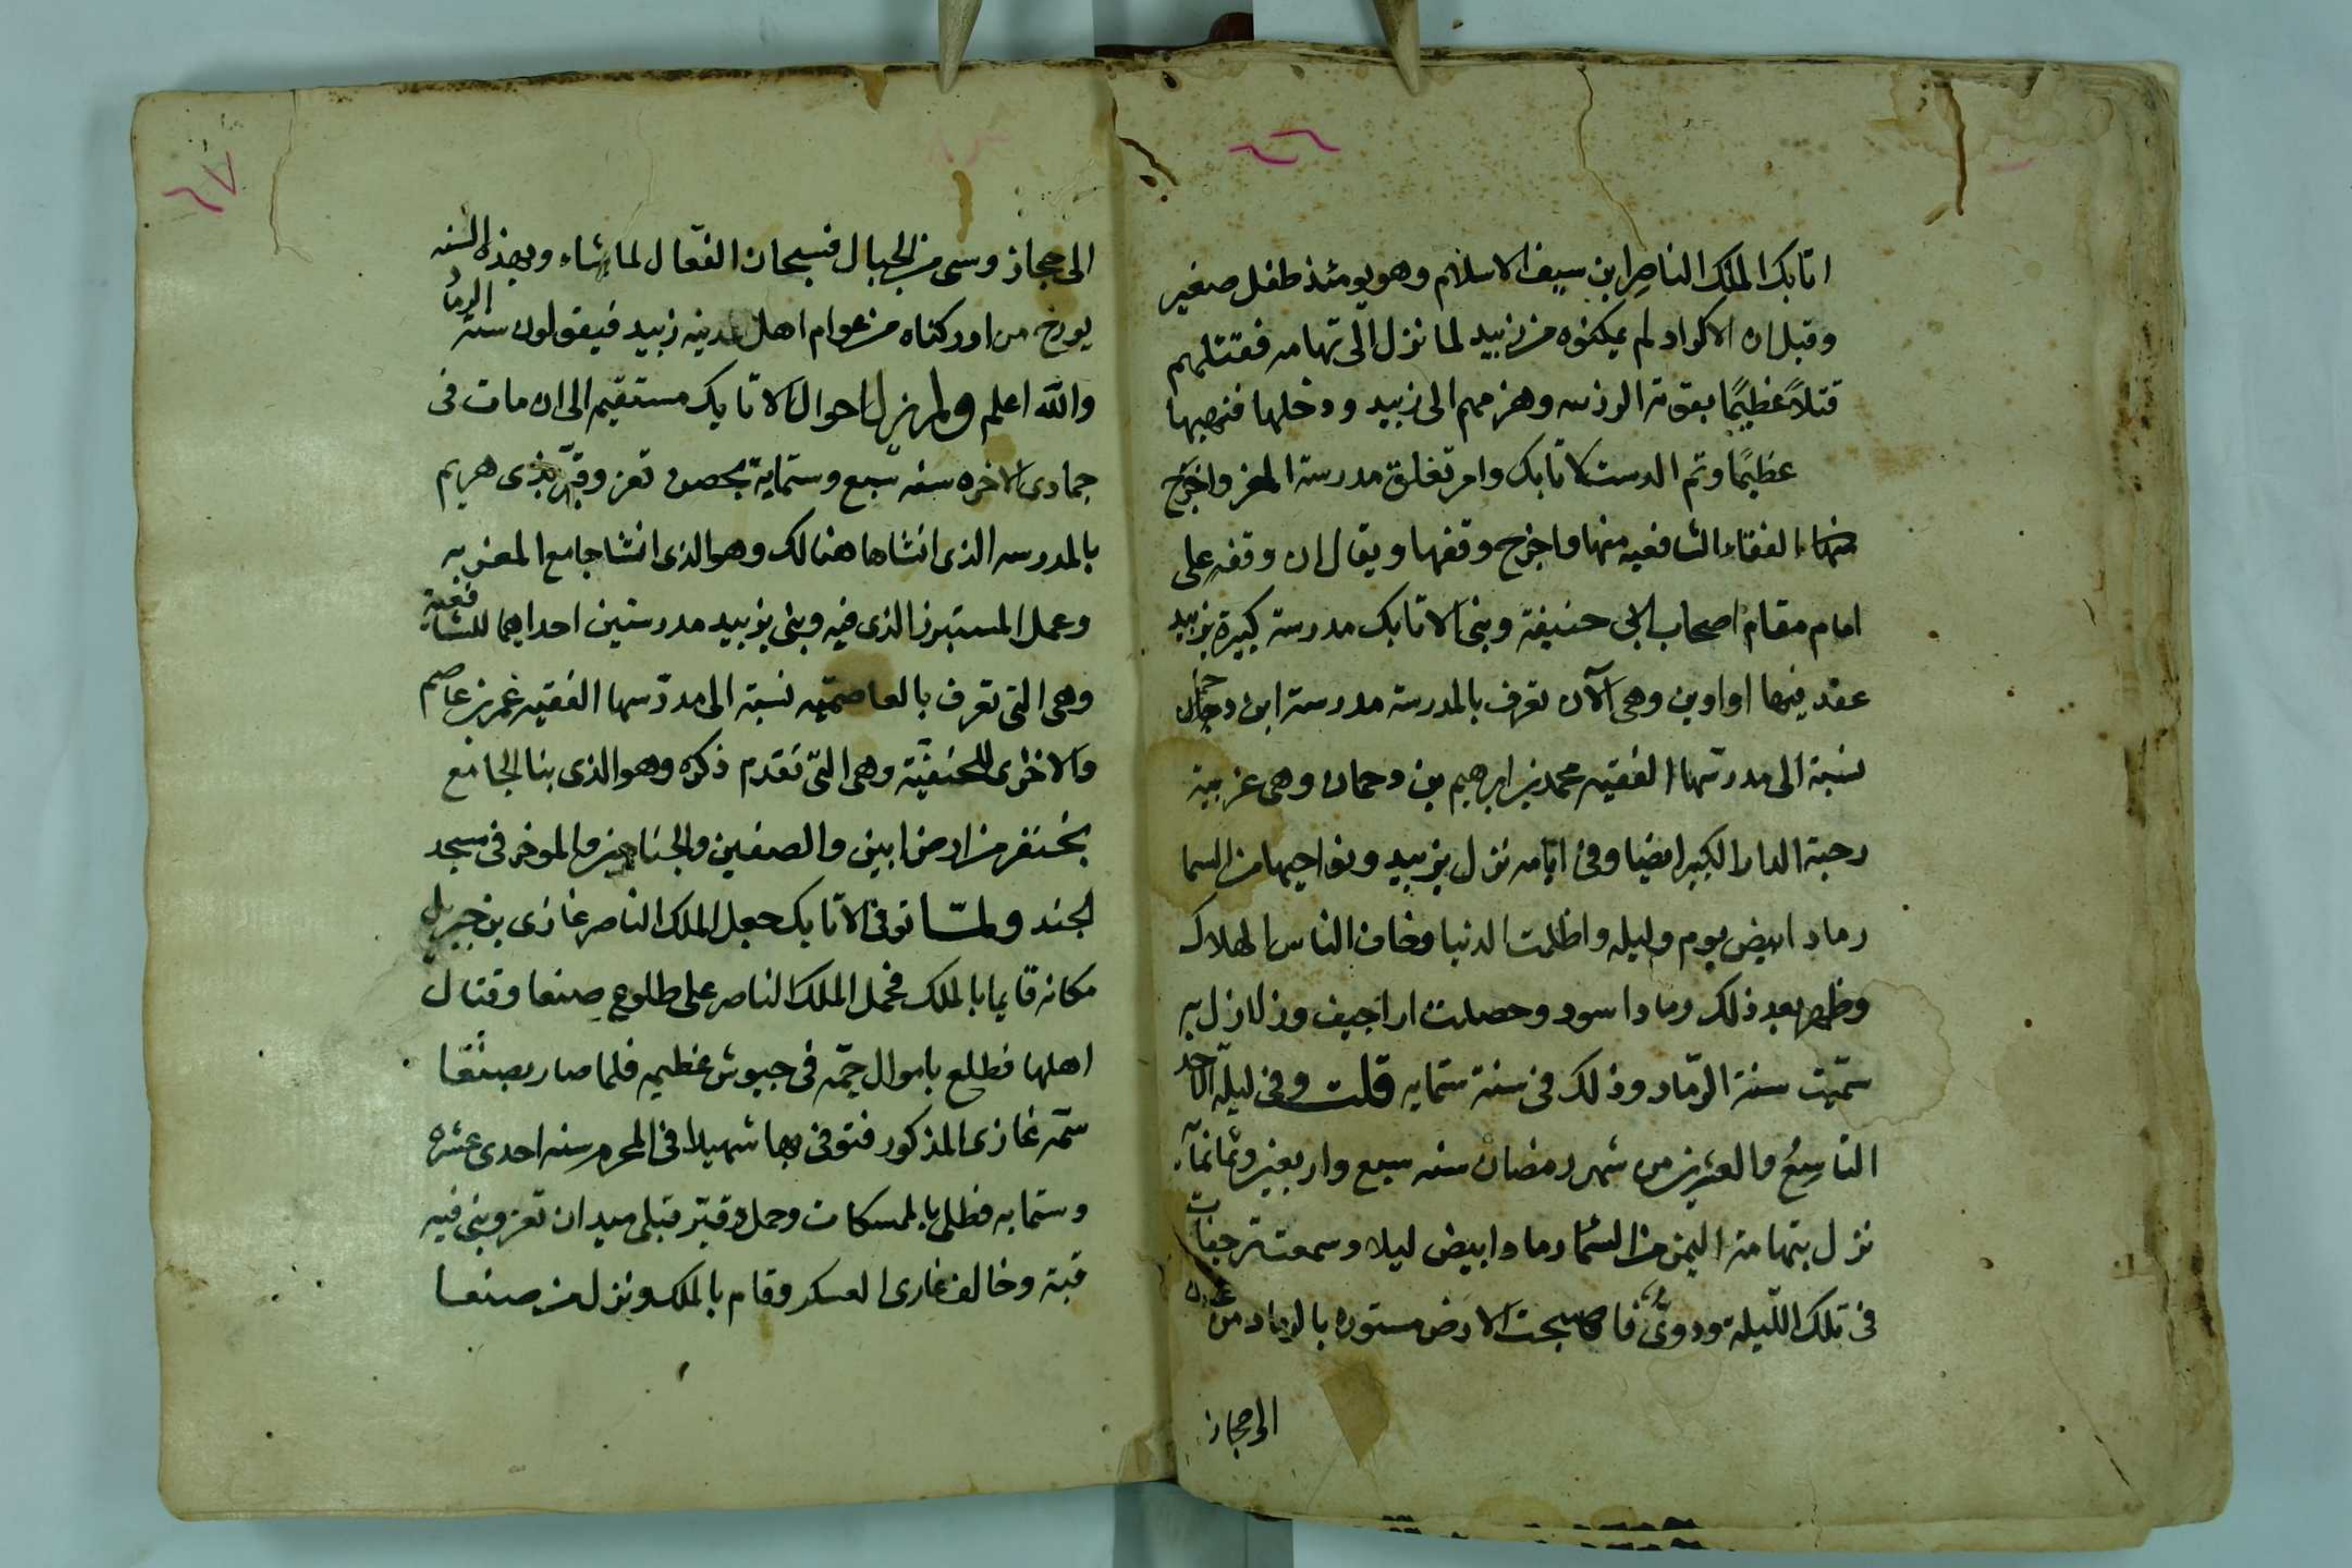 ٦٦
اتابك الملك الناصر ابن سيف الاسلام وهو يومئذ طفل صغير
وقيل ان الاكراد لم يمكنوه من زبيد لما نزل الى تهامه فقتلهم
قتلاً عظيمًا بقوته الوزنه وهزمهم الى زبيد ودخلها فنهبها
عظيمًا وتم الدست لاتابك وامر تغلق مدرسة المعز واخرج
الفقهاء الشافعيه منها واخرج وقفها ويقال ان وقفه على
امام مقام اصحاب ابى حنيفة وبنى الاتابك مدرسة كبيرة بزبيد
عقد فيها اواوين وهى الآن تعرف بالمدرسة مدرسة ابن دحمان
نسبة الى مدرسها الفقيه محمد بن ابرهيم بن دحمان وهى غربية
رحبة الدار الكبير ايضا وفى ايامه نزل بزبيد ونواحيها من السما
رماد ابيض يوم وليله واظلمت الدنيا وخاف الناس الهلاك
وظهر بعد ذلك رماد اسود وحصلت اراجيف وزلازل به
سمّيت سنة الرمّاد وذلك فى سنة ستمايه قلت وفى ليلة الاحد
التاسع والعشرين من شهر رمضان سنه سبع واربعين وثمانمآء
نزل بتهامة اليمن من السّما رماد ابيض ليلا وسمعت رجفات
فى تلك اللّيلة ودوىٌّ فاصبحت الارض مستوره بالرماد من عدن
الى حجاز
٦٧
الى حجاز وسى من الجبال فسبحان الفعّال لما يشاء وبهذه السنه
يورخ من ادركناه من عوام اهل مدينه زبيد فيقولون سنة الرماد
والله اعلم ولم يزل احوال الاتابك مستقيم الى ان مات فى
جمادى الاخره سنه سبع وستماية بحصن تعز وقبر بذى هريم
بالمدرسه الذى انشاها هنالك وهو الذى انشا جامع المغربه
وعمل المنبر الذى فيه وبنى بزبيد مدرستين احداهما للشافعية
وهى التى تعرف بالعاصمّيه نسبة الى مدرّسها الفقيه عمر بن عاصم
والاخرى للحنفيّة وهى التى تقدم ذكره وهو الذى بنا الجامع
بخنفر من ارض ابين والصفين والجناحين والموخر فى مسجد
الجند ولمّا توفى الاتابك جعل الملك الناصر غازى بن جبريل
مكانه قايما بالملك فحمل الملك الناصر على طلوع صنعا وقتال
اهلها فطلع باموال جمّه فى جيوش عظيمه فلما صار بصنعا
سمّه غازى المذكور فتوفى بها شهيدا فى المحرم سنه احدى عشره
وستمايه فطلى بالمسكات وحمل وقبر قبلى ميدان تعز وبنى فيه
قبة وخالف غازى العسكر وقام بالملك ونزل من صنعا